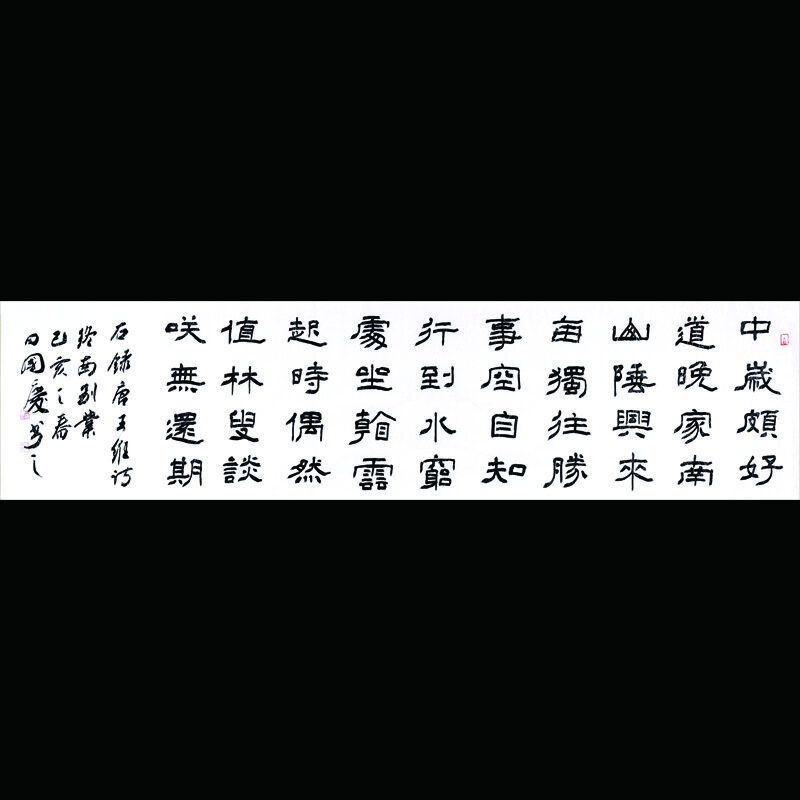 中歲頗好
道晚家南
山陲興來
每獨往勝
事空自知
行到水窮
處坐看雲
起時偶然
值林叟談
咲無還期
右錄唐王維詩
終南別業
己亥之春
日國慶書之